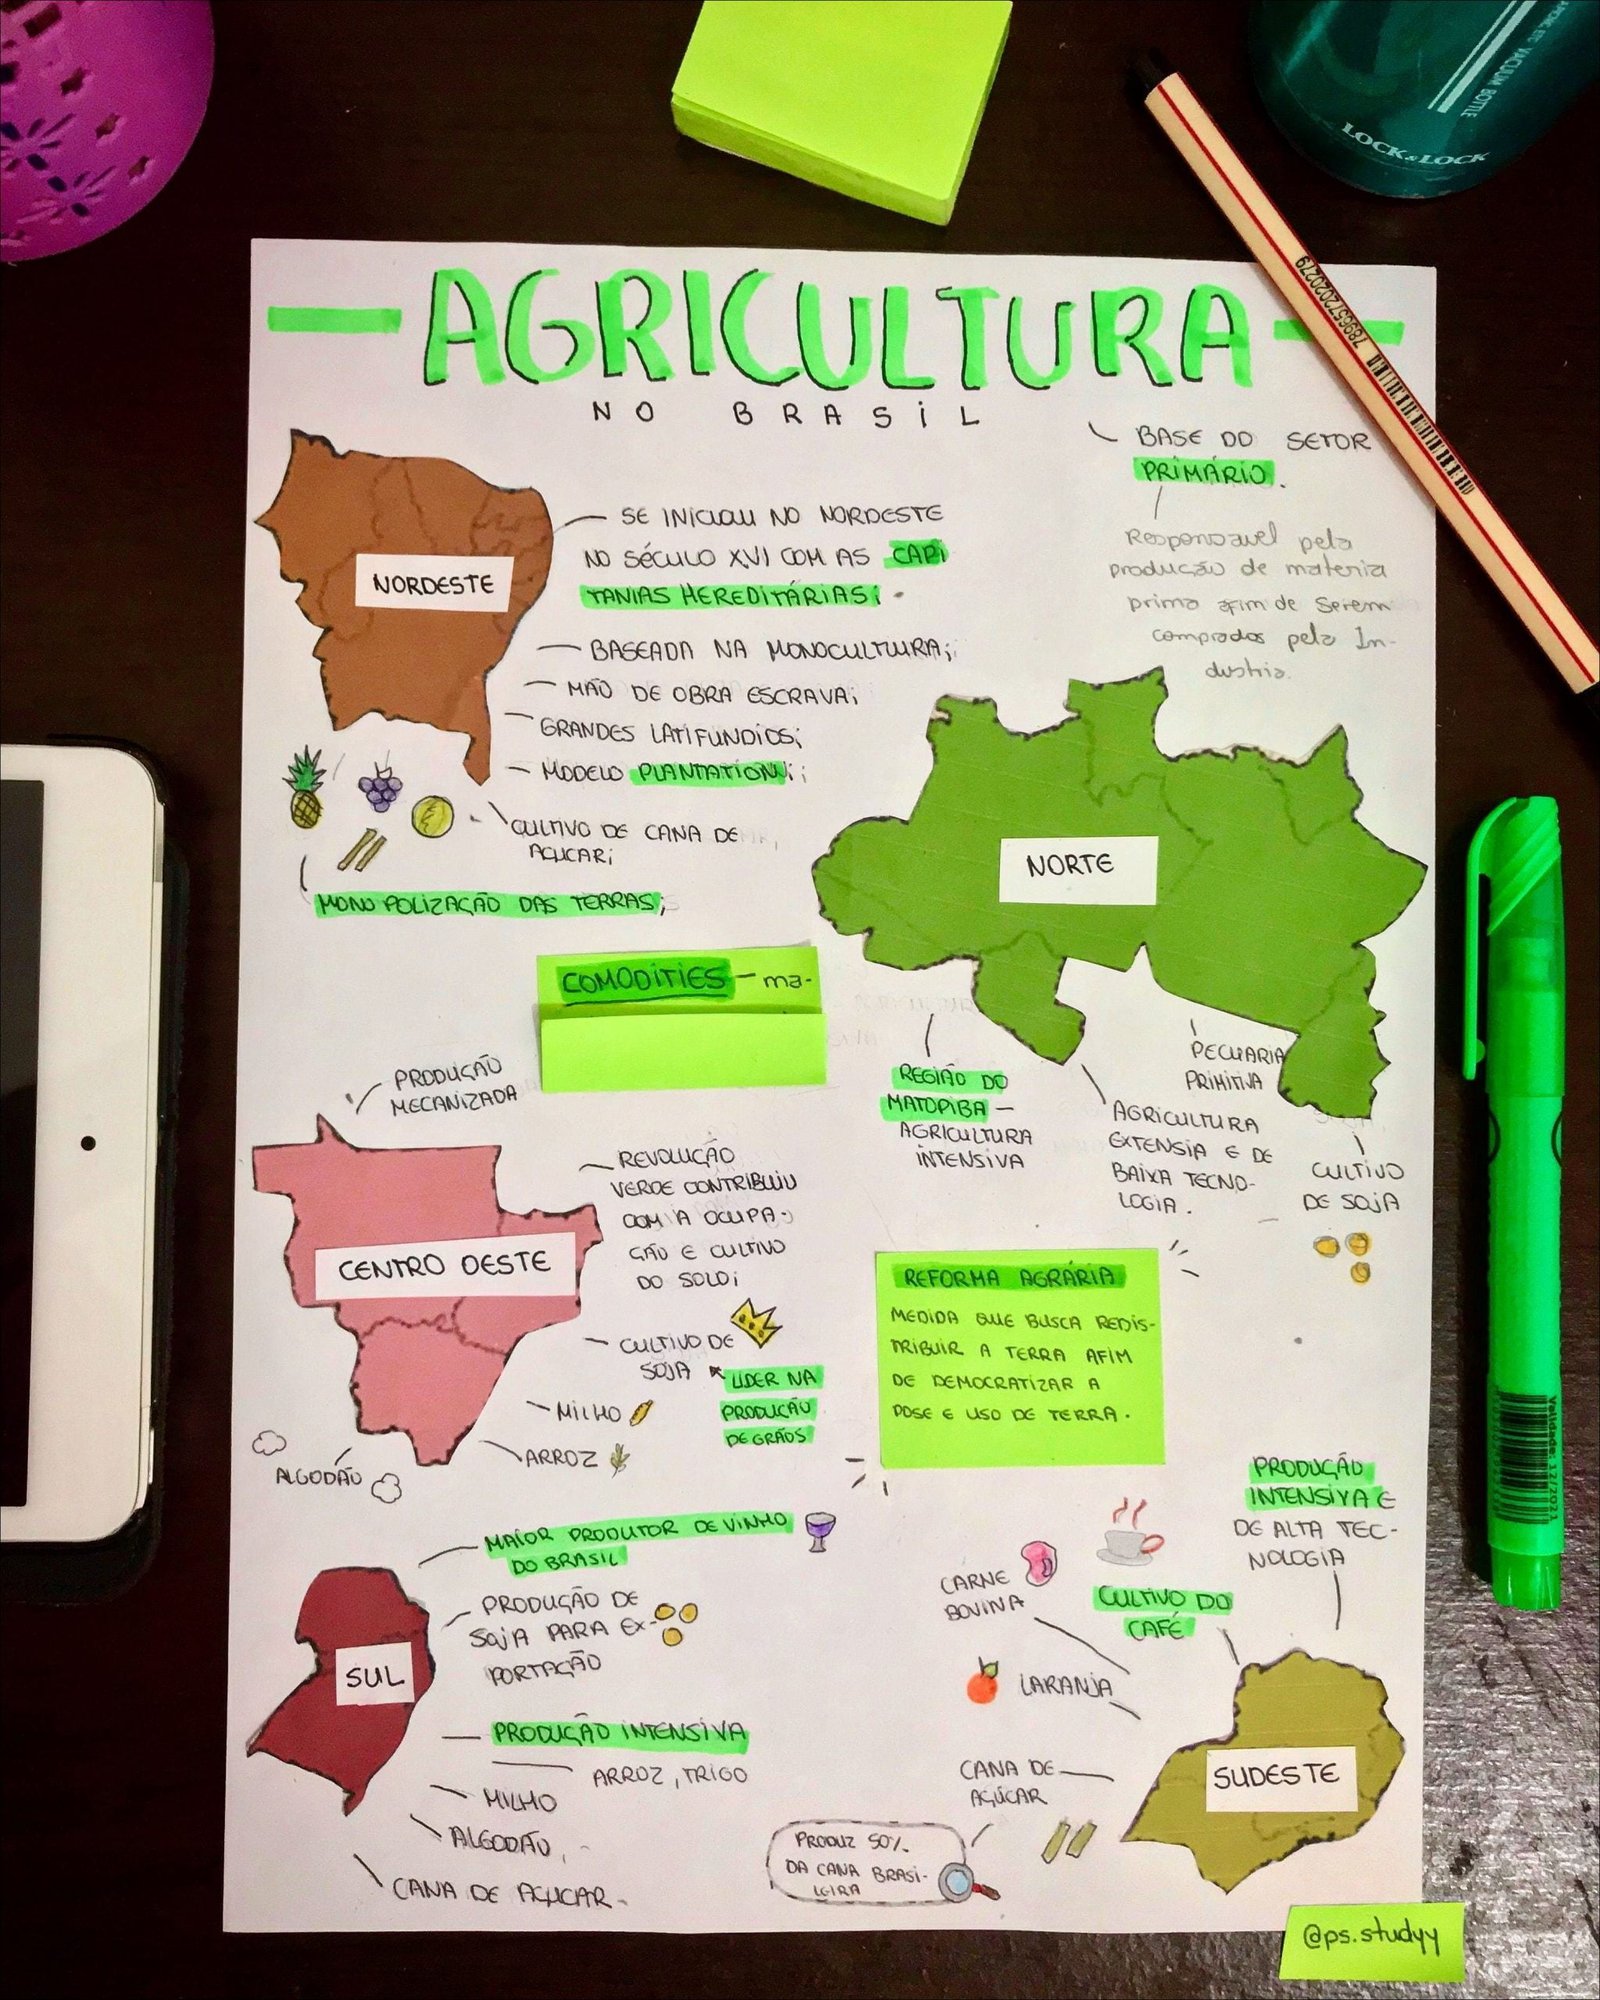 AGRICULTURA
NO BRASIL
BASE DO SETOR
PRIMÁRIO.
Responsavel pela
produção de materia
prima afim de Serem
comprados pela In-
dustria.
NORDESTE
SE INICIOU NO NORDESTE
NO SÉCULO XVI COM AS CAPI
TANIAS HEREDITÁRIAS;
BASEADA NA MONOCULTURA;
MÃO DE OBRA ESCRAVA;
GRANDES LATIFUNDIOS;
MODELO PLANTATION;
CULTIVO DE CANA DE
AÇUCAR;
MONOPOLIZAÇÃO DAS TERRAS;
NORTE
REGIÃO DO
MATOPIBA —
AGRICULTURA
INTENSIVA
PECUARIA
PRIMITIVA
AGRICULTURA
EXTENSIA E DE
BAIXA TECNO-
LOGIA.
CULTIVO
DE SOJA
COMODITIES — ma-
PRODUÇÃO
MECANIZADA
CENTRO OESTE
REVOLUÇÃO
VERDE CONTRIBUIU
COM A OCUPA-
ÇÃO E CULTIVO
DO SOLO;
CULTIVO DE
SOJA
LIDER NA
PRODUÇÃO
DE GRÃOS
MILHO
ARROZ
ALGODÃO
REFORMA AGRÁRIA
MEDIDA QUE BUSCA REDIS-
TRIBUIR A TERRA AFIM
DE DEMOCRATIZAR A
POSE E USO DE TERRA.
SUL
MAIOR PRODUTOR DE VINHO
DO BRASIL
PRODUÇÃO DE
SOJA PARA EX-
PORTAÇÃO
PRODUÇÃO INTENSIVA
ARROZ, TRIGO
MILHO
ALGODÃO,
CANA DE AÇUCAR
PRODUÇÃO
INTENSIVA E
DE ALTA TEC-
NOLOGIA
CARNE
BOVINA
CULTIVO DO
CAFÉ
LARANJA
CANA DE
AÇÚCAR
SUDESTE
PRODUZ 50%
DA CANA BRASI-
LEIRA
@ps.studyy
VACUUM BOTTLE
LOCK&LOCK
7896572020279
Validade: 12/2021